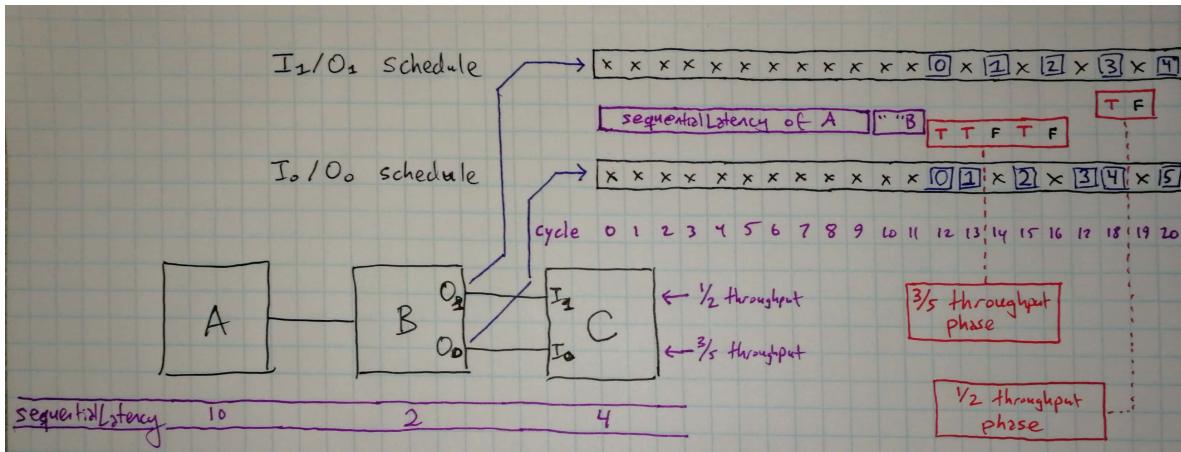 I1/O1 schedule
x x x x x x x x x x x x 0 x 1 x 2 x 3 x 4
sequentialLatency of A " " B
T T F T F
T F
I0/O0 schedule
x x x x x x x x x x x x 0 1 x 2 x 3 4 x 5
cycle 0 1 2 3 4 5 6 7 8 9 10 11 12 13 14 15 16 17 18 19 20
A
B
O1
O0
I1
I0
C
← 1/2 throughput
← 3/5 throughput
3/5 throughput
phase
1/2 throughput
phase
sequentialLatency 10 2 4